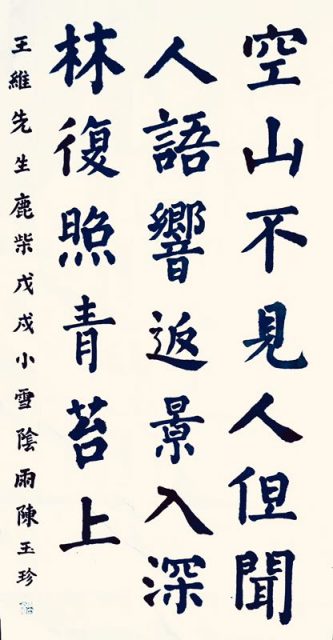 空山不見人但聞
人語響返景入深
林復照青苔上
王維先生鹿柴戊戌小雪陰雨陳玉珍